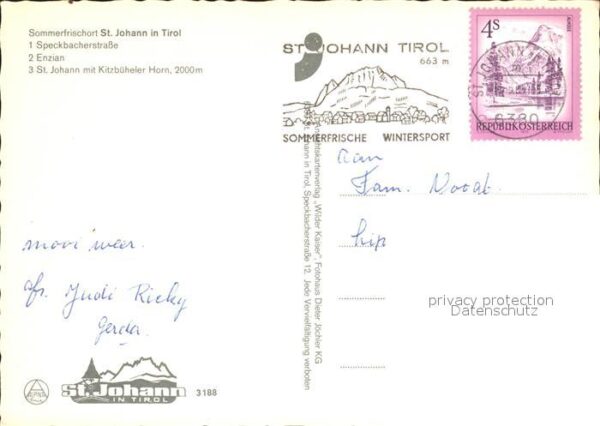 Sommerfrischort St. Johann in Tirol
1 Speckbacherstraße
2 Enzian
3 St. Johann mit Kitzbüheler Horn, 2000m
ST JOHANN TIROL
663 m
SOMMERFRISCHE WINTERSPORT
4S
REPUBLIK ÖSTERREICH
ST. JOHANN IN
6380
Ansichtskartenverlag „Wilder Kaiser", Fotohaus Dieter Jöchler KG
St. Johann in Tirol, Speckbacherstraße 12. Jede Vervielfältigung verboten
aan
Fam.
mooi weer.
Judi Ricky
Gerda.
privacy protection
Datenschutz
St. Johann
IN TIROL
3188